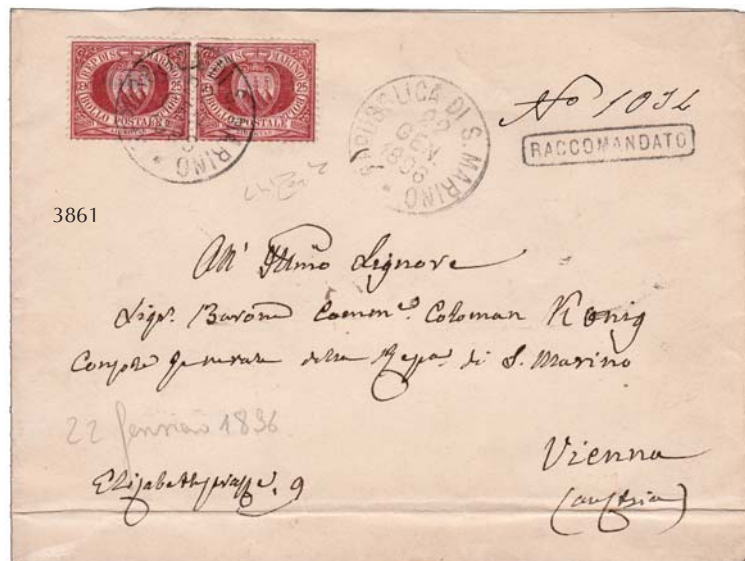 REP. DI S. MARINO
BOLLO POSTALE
REP. DI S. MARINO
BOLLO POSTALE
REPUBBLICA DI S. MARINO
22
GEN.
1896
No 1034
RACCOMANDATO
3861
All' Illmo Signore
Sigr. Barone Comm. Coloman König
Console Generale della Repa. di S. Marino
22 gennaio 1896
Vienna
Elisabethstrasse, 9
(Austria)